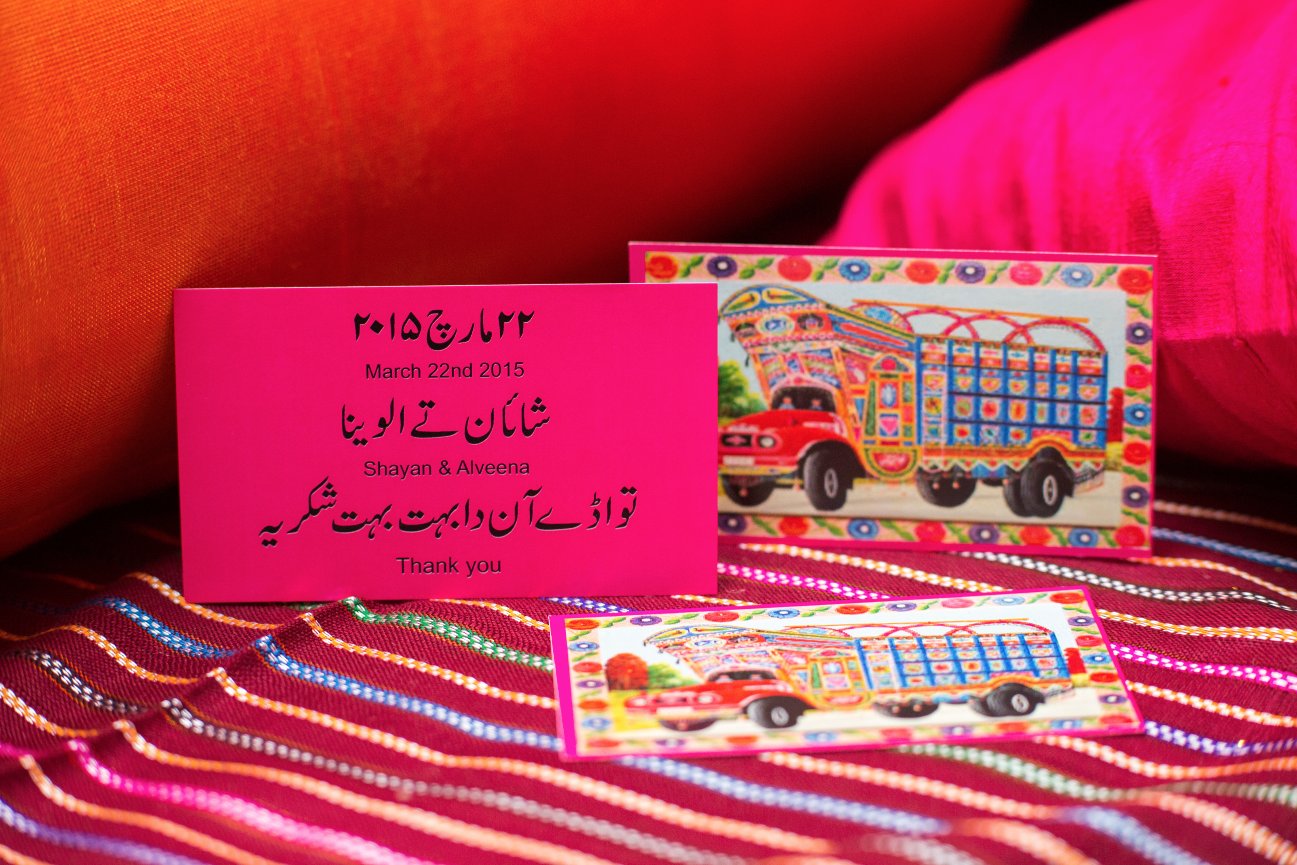 ۲۲ مارچ ۲۰۱۵
March 22nd 2015
شائان تے الوینا
Shayan & Alveena
تواڈے آن دا بہت بہت شکریہ
Thank you